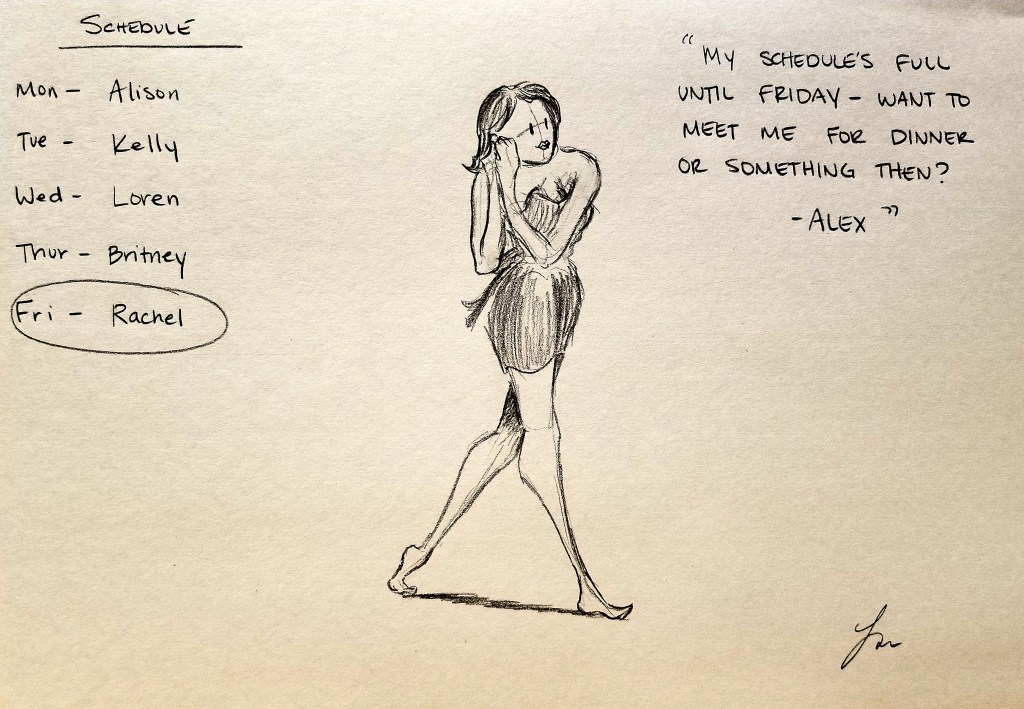 SCHEDULE
Mon - Alison
Tue - Kelly
Wed - Loren
Thur - Britney
Fri - Rachel
"MY SCHEDULE'S FULL
UNTIL FRIDAY - WANT TO
MEET ME FOR DINNER
OR SOMETHING THEN?
- ALEX"